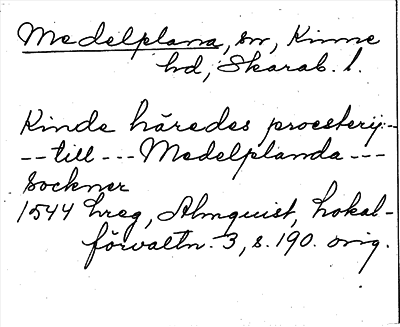 Medelplana, sn, Kinne
hd, Skarab. l.
Kinde häredes proesterij --
-- till --- Medelplanda ---
Sockner
1544 hreg, Almquist, Lokal-
förvaltn. 3, s. 190. orig.